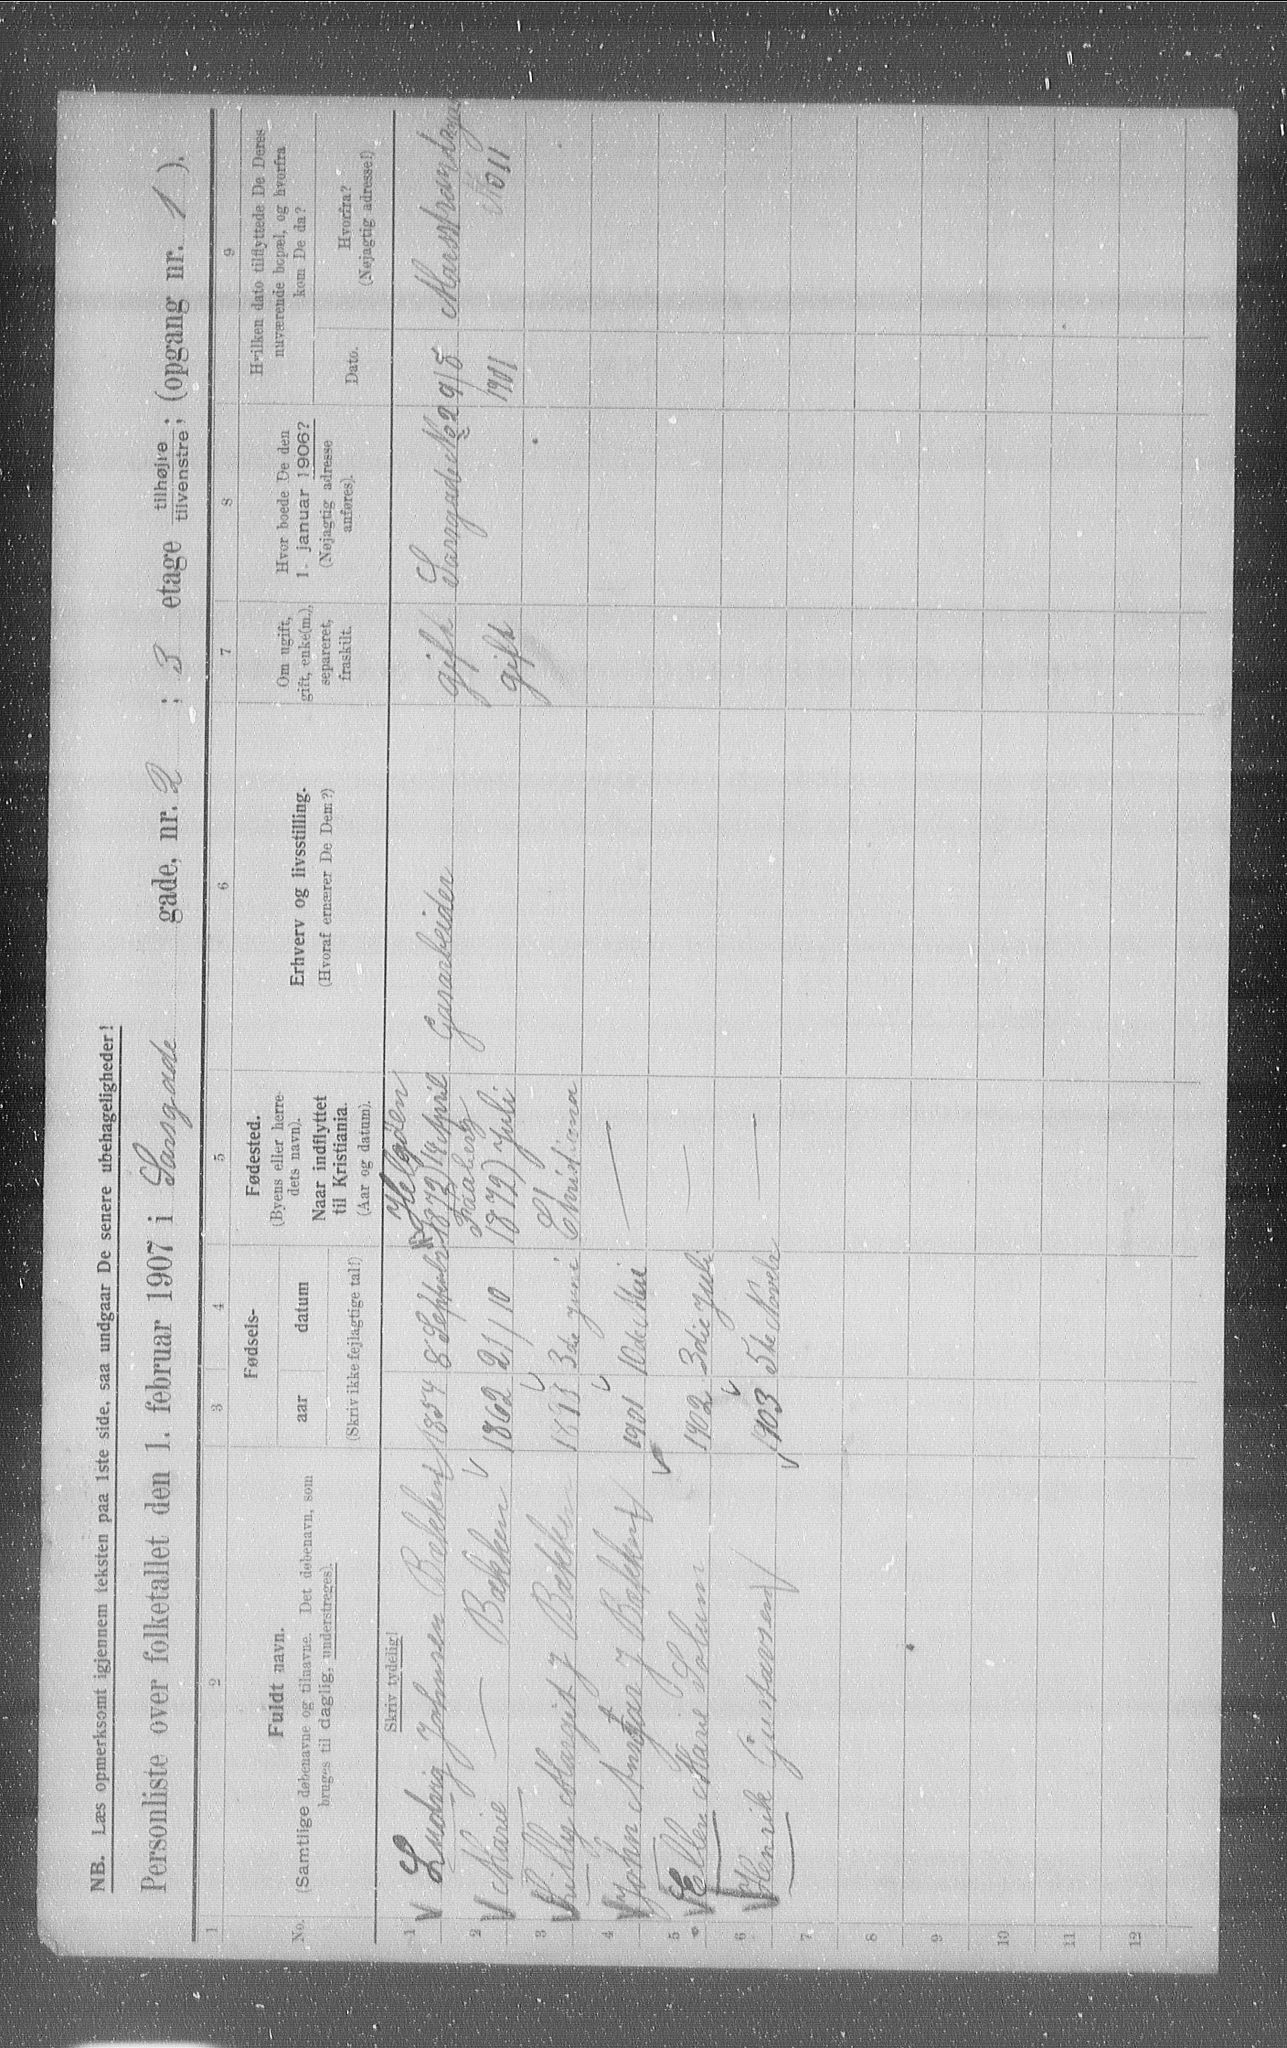 NB. Læs opmerksomt igjennem teksten paa 1ste side, saa undgaar De senere ubehageligheder!
Personliste over folketallet den 1. februar 1907 i Sarsgade gade, nr. 2 ; 3 etage tilhøjre / tilvenstre ; (opgang nr. 1 ).
1 2 3 4 5 6 7 8 9
No.
Fuldt navn.
(Samtlige døbenavne og tilnavne. Det døbenavn, som
bruges til daglig, understreges).
Fødsels-
aar datum
(Skriv ikke fejlagtige tal!)
Fødested.
(Byens eller herre-
dets navn).
Naar indflyttet
til Kristiania.
(Aar og datum).
Erhverv og livsstilling.
(Hvoraf ernærer De Dem?)
Om ugift,
gift, enke(m.),
separeret,
fraskilt.
Hvor boede De den
1. januar 1906?
(Nøjagtig adresse
anføres).
Hvilken dato tilflyttede De Deres
nuværende bopæl, og hvorfra
kom De da?
Dato.
Hvorfra?
(Nøjagtig adresse!)
Skriv tydelig!
1 Ludvig Johnsen Bækken 1854 8 Septbr 1872) 14 April Gasarbeider gift Sarsgade No 2 29/5
1901 No 11
2 Marie — Bækken 1862 21/10 Faaberg 1872) Juli gift
3 Lilly Margit J Bækken 3die juni Christiania
4 John Ansgar J Bækken 1901 10de Mai —
5 Ellen Marie Solum 1902 3die Juli —
6 Henrik Gustavsen 1903 5te Novebr —
7
8
9
10
11
12